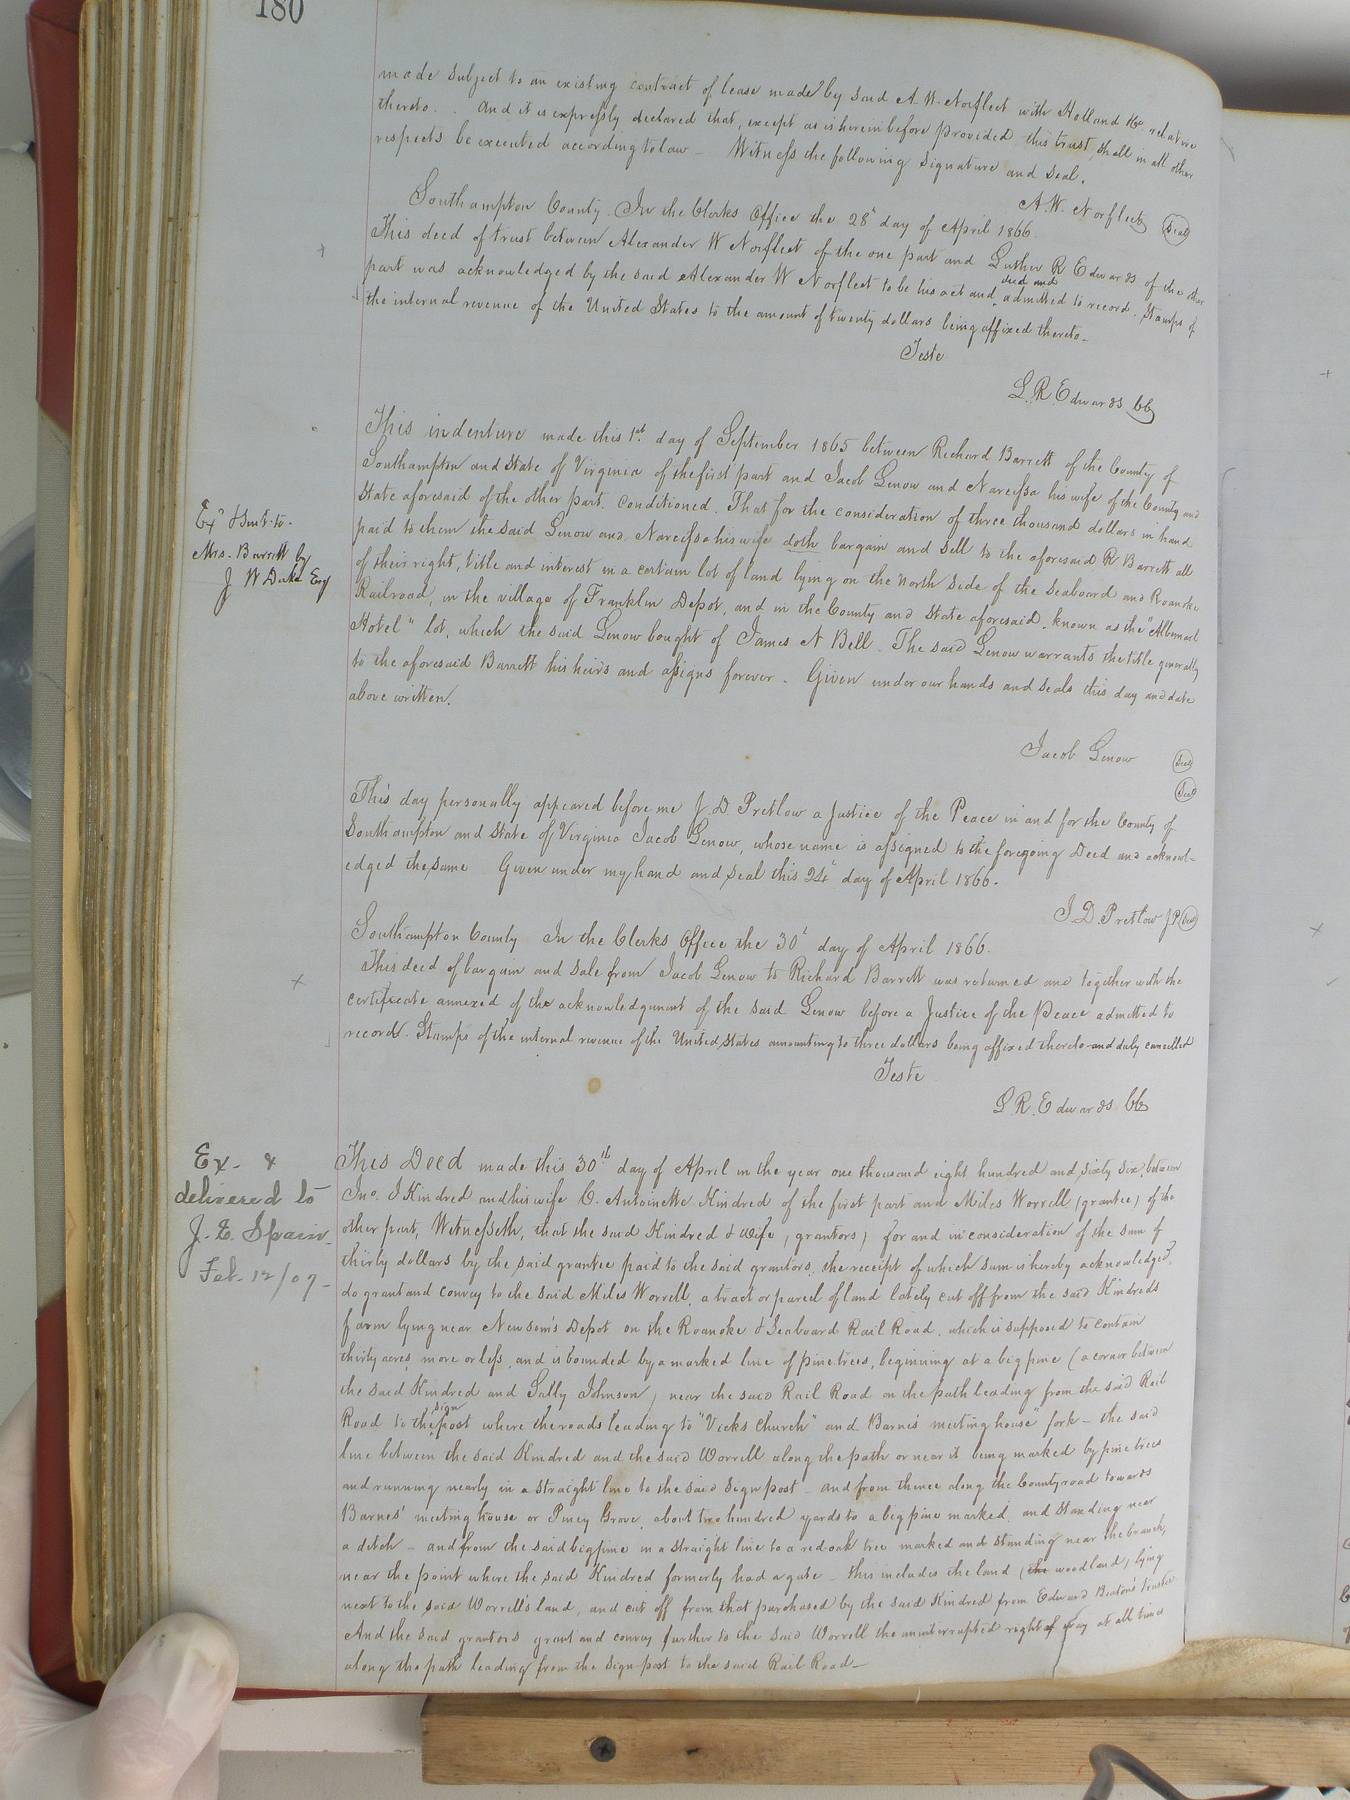 180
made subject to an existing contract of lease made by said A. W. Norfleet with Holland &c relative
thereto. And it is expressly declared that, except as is herein before provided this trust, shall in all other
respects be executed according to law — Witness the following signature and seal.
A. W. Norfleet (Seal)
Southampton County. In the Clerks Office the 28th day of April 1866.
This deed of trust between Alexander W Norfleet of the one part and Luther R Edwards of the other
part was acknowledged by the said Alexander W Norfleet to be his act and deed and admitted to record. Stamps of
the internal revenue of the United States to the amount of twenty dollars being affixed thereto.
Teste
L. R. Edwards CC
Exd & Sent to
Mrs. Barrett by
J W Duke Esq
This indenture made this 1st day of September 1865 between Richard Barrett of the County of
Southampton and State of Virginia of the first part and Jacob Lenow and Narcissa his wife of the County and
State aforesaid of the other part. Conditioned. That for the consideration of three thousand dollars in hand
paid to them the said Lenow and Narcissa his wife doth bargain and sell to the aforesaid R Barrett all
of their right, title and interest in a certain lot of land lying on the north side of the Seaboard and Roanoke
Railroad, in the village of Franklin Depot, and in the County and State aforesaid, known as the "Albemarl
Hotel" lot, which the said Lenow bought of James N Bell. The said Lenow warrants the title generally
to the aforesaid Barrett his heirs and assigns forever. Given under our hands and seals this day and date
above written.
Jacob Lenow (Seal)
(Seal)
This day personally appeared before me J. D Pretlow a Justice of the Peace in and for the County of
Southampton and State of Virginia Jacob Lenow, whose name is assigned to the foregoing Deed and acknowl-
edged the same Given under my hand and seal this 24th day of April 1866.
J. D. Pretlow JP (Seal)
Southampton County In the Clerks Office the 30th day of April 1866.
This deed of bargain and sale from Jacob Lenow to Richard Barrett was returned and together with the
certificate annexed of the acknowledgement of the said Lenow before a Justice of the Peace admitted to
record. Stamps of the internal revenue of the United States amounting to three dollars being affixed thereto and duly cancelled
Teste
L. R. Edwards CC
Ex. &
delivered to
J. E. Spain
Feb. 12/07
This Deed made this 30th day of April in the year one thousand eight hundred and sixty six, between
Jno. J Kindred and his wife C. Antoinette Kindred of the first part and Miles Worrell (grantee) of the
other part, Witnesseth, that the said Kindred & wife, (grantors) for and in consideration of the sum of
thirty dollars by the said grantee paid to the said grantors, the receipt of which sum is hereby acknowledged,
do grant and convey to the said Miles Worrell, a tract or parcel of land lately cut off from the said Kindreds
farm lying near Newsom's Depot on the Roanoke & Seaboard Rail Road, which is supposed to contain
thirty acres, more or less, and is bounded by a marked line of pine trees, beginning at a big pine (a corner between
the said Kindred and Sally Johnson) near the said Rail Road on the path leading from the said Rail
Road to the sign post where the roads leading to "Vicks Church" and Barnes' meeting house" fork — the said
line between the said Kindred and the said Worrell along the path or near it being marked by pine trees
and running nearly in a straight line to the said Sign post — and from thence along the County road towards
Barnes' meeting house or Piney Grove, about two hundred yards to a big pine marked, and standing near
a ditch — and from the said big pine in a straight line to a red oak tree marked and standing near the branch,
near the point where the said Kindred formerly had a gate — this includes the land (the woodland) lying
next to the said Worrell's land, and cut off from that purchased by the said Kindred from Edward Beaton's trustee
And the said grantors grant and convey further to the said Worrell the uninterrupted right of way at all times
along the path leading from the Sign post to the said Rail Road —